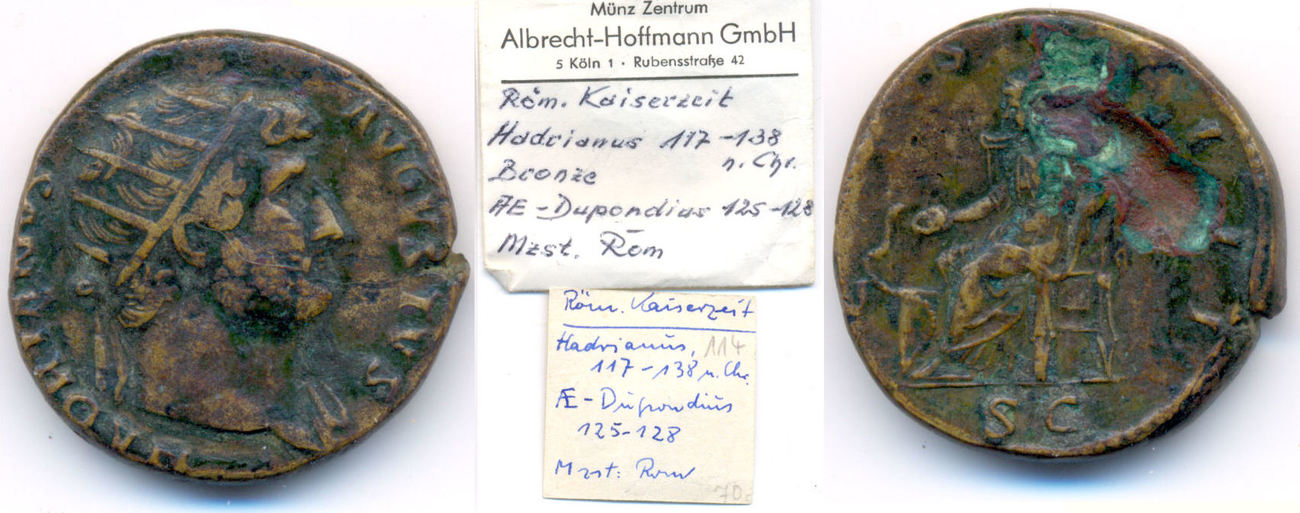 HADRIANVS
AVGVSTVS
Münz Zentrum
Albrecht-Hoffmann GmbH
5 Köln 1 · Rubensstraße 42
Röm. Kaiserzeit
Hadrianus 117-138
n. Chr.
Bronze
Æ-Dupondius 125-128
Mzst. Rom
Röm. Kaiserzeit
Hadrianus, 114
117-138 n. Chr.
Æ-Dupondius
125-128
Mzst: Rom
S C